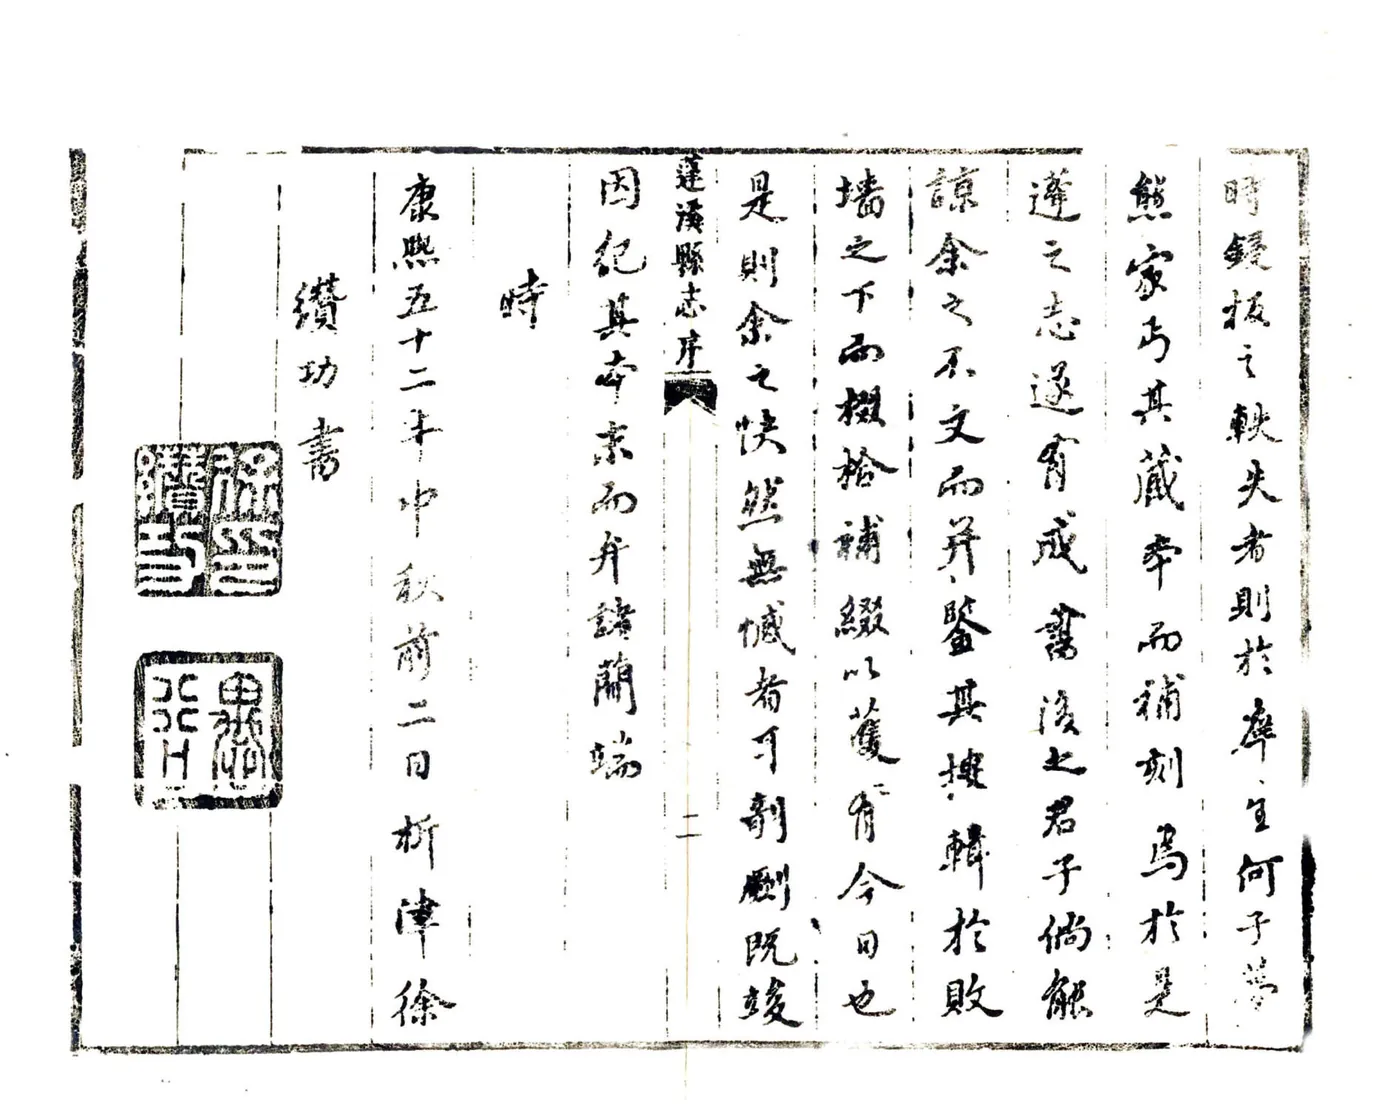 時鋟板之軼失者則於庠生何子夢
熊家丐其藏本而補刻焉於是
蓬之志遂有成書後之君子倘能
諒余之不文而并鑒其搜輯於敗
墻之下而掇拾補綴以獲有今日也
是則余之快然無憾者耳剞劂既竣
蓬溪縣志序
二
因紀其本末而弁諸簡端
時
康熙五十二年中秋前二日析津徐
纘功書
徐印纘功